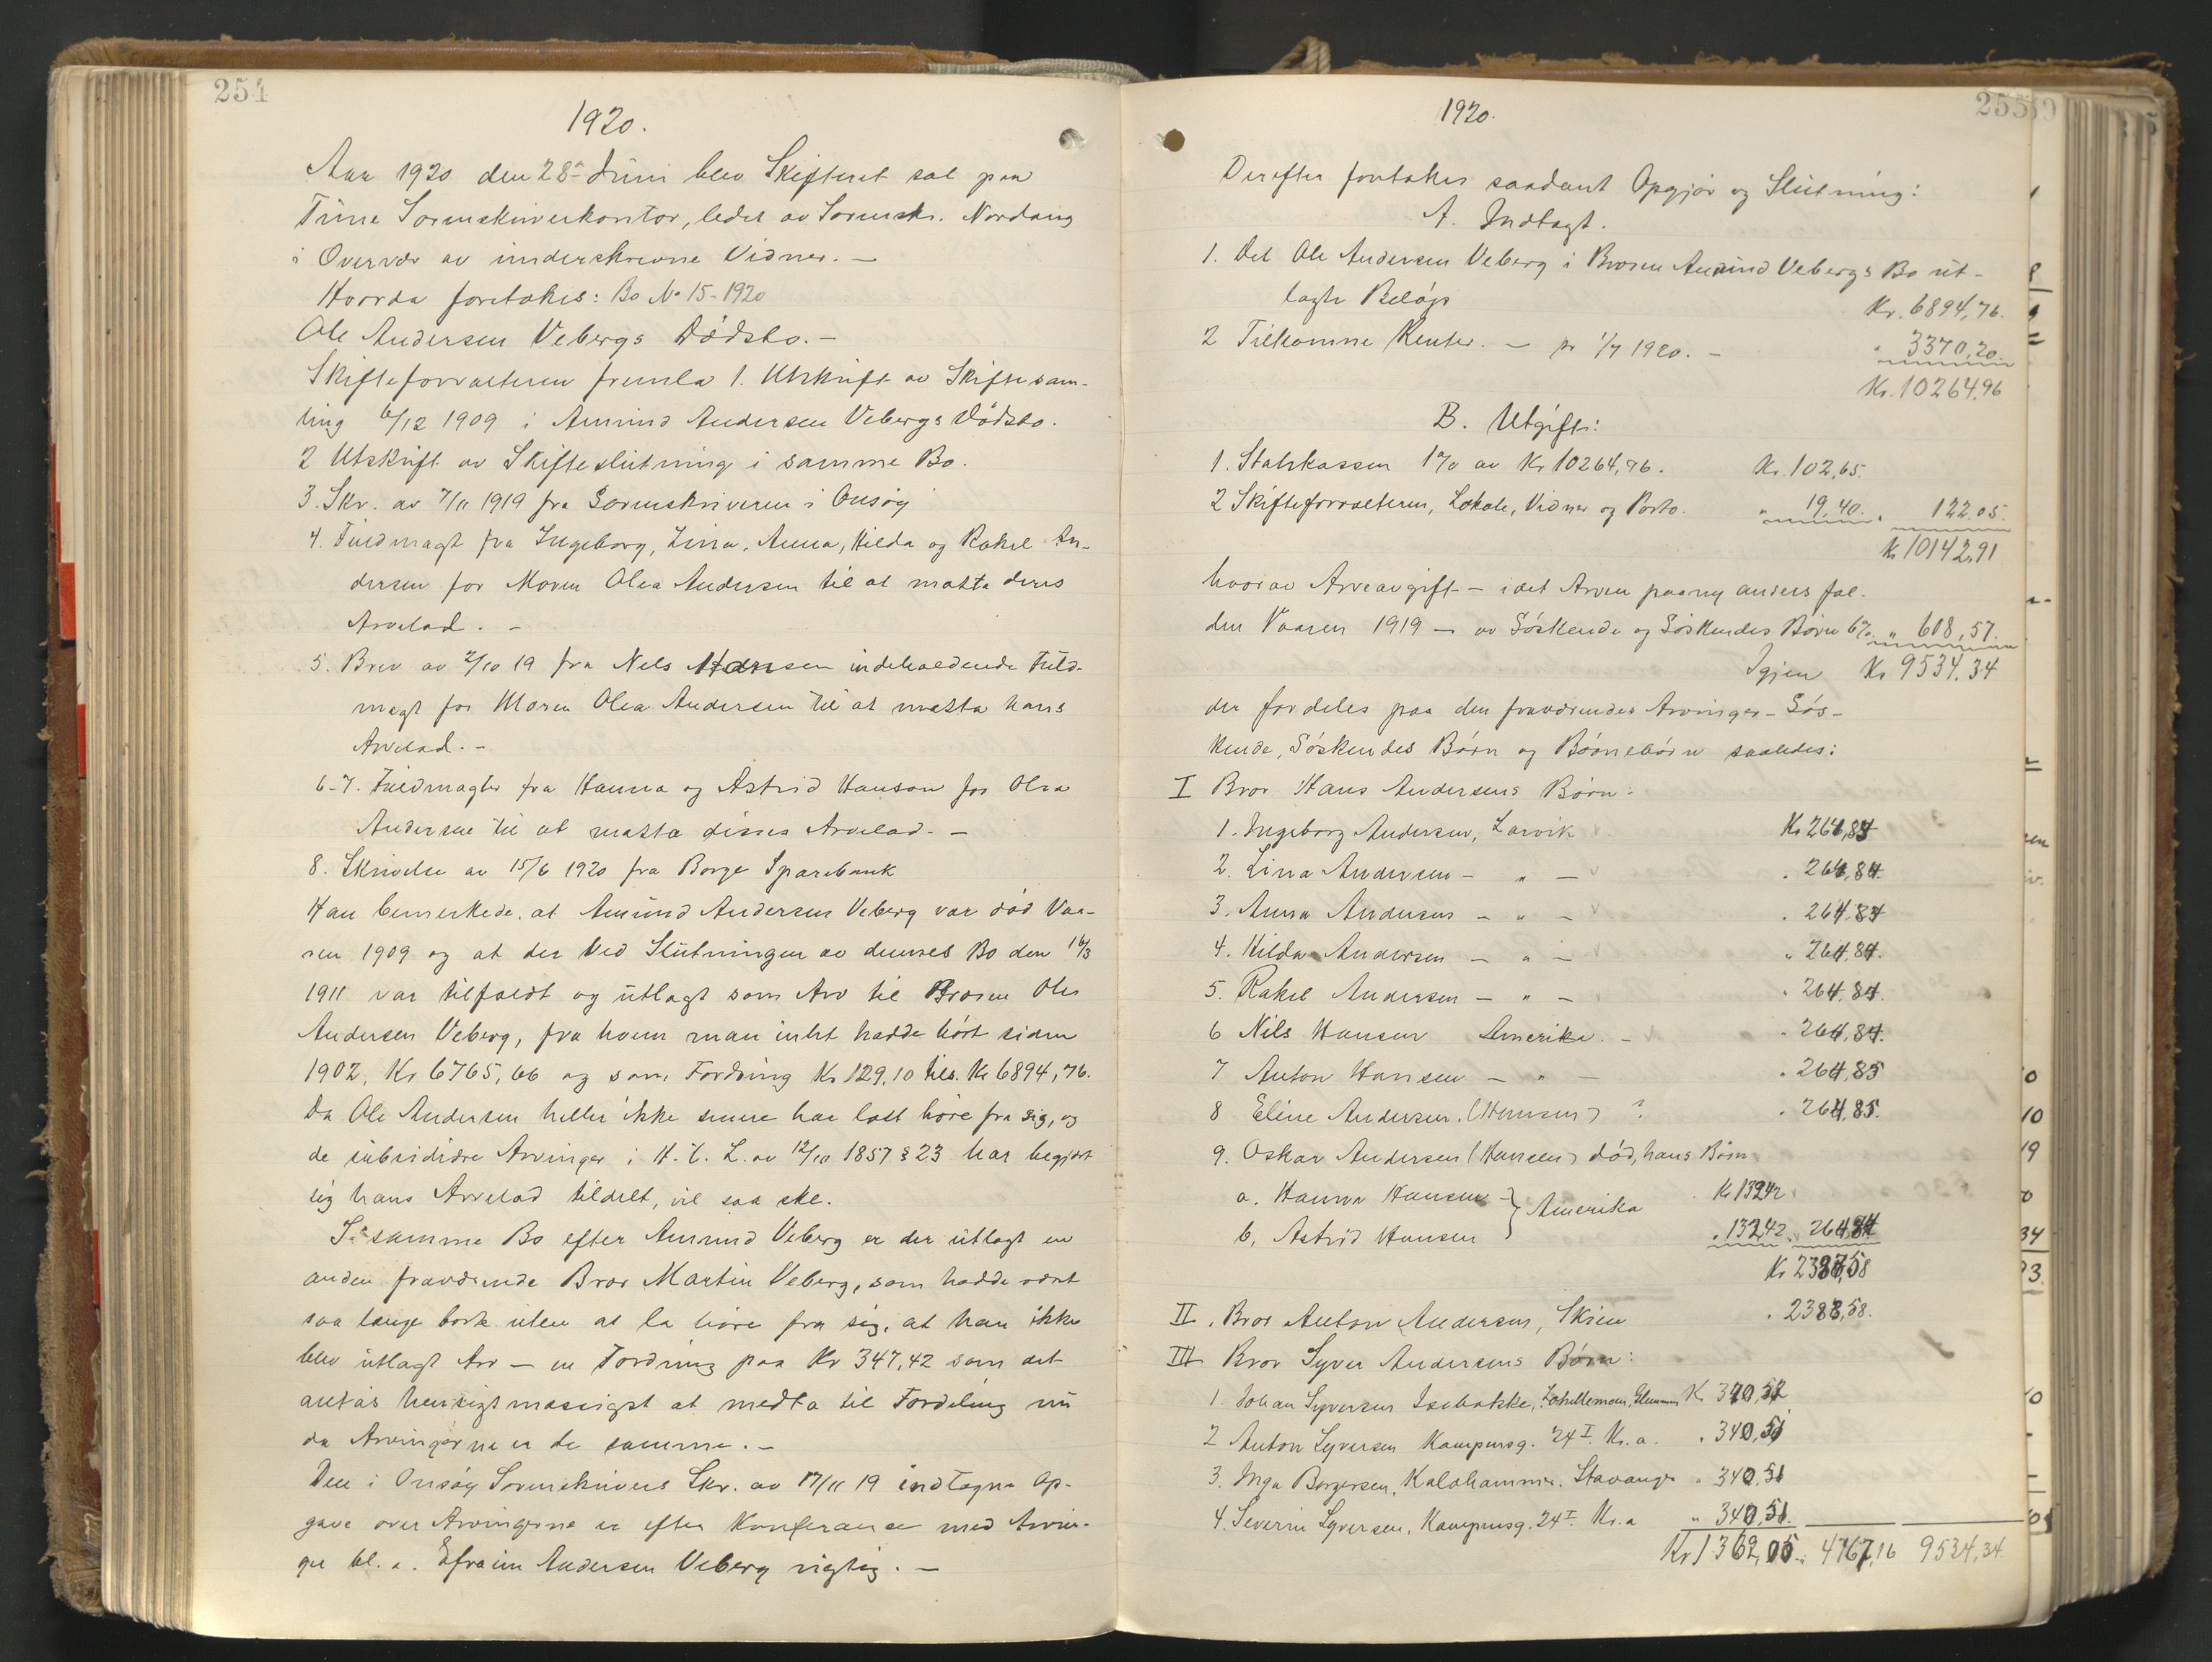 254
1920.
Aar 1920 den 28de Juni blev Skifteret sat paa
Tune Sorenskriverkontor, ledet av Sorenskr. Nordang
i Overvær av underskrevne Vidner. —
Hvorda foretokes: Bo No 15-1920
Ole Andersen Vebergs Dødsbo. —
Skifteforvalteren fremla 1. Utskrift av Skiftesam-
ling 6/12 1909 i Amund Andersen Vebergs Dødsbo.
2 Utskrift av Skifteslutning i samme Bo.
3. Skr. av 7/11 1919 fra Sorenskriveren i Onsøy
4. Fuldmagt fra Ingeborg, Lina, Anna, Hilda og Rakel An-
dersen for Moren Olea Andersen til at motta deres
Arvelod. —
5. Brev av 2/10 19 fra Nels Hansen indeholdende Fuld-
magt for Moren Olea Andersen til at motta hans
Arvelod. —
6-7. Fuldmagter fra Hanna og Astrid Hanson for Olea
Andersen til at motta disses Arvelod. —
8. Skrivelse av 15/6 1920 fra Borge Sparebank
Han bemerkede, at Amund Andersen Veberg var død Vaa-
ren 1909 og at der ved Slutningen av dennes Bo den 16/3
1911 var tilfaldt og utlagt som Arv til Broren Ole
Andersen Veberg, fra hvem man intet hadde hørt siden
1902, Kr 6765,66 og som Fordring Kr 129,10 tils. Kr 6894,76.
Da Ole Andersen heller ikke senere har latt høre fra sig, og
de subsidiære Arvinger i H. t. L. av 12/10 1857 § 23 har begjært
sig hans Arvelod tildelt, vil saa ske.
I samme Bo efter Amund Veberg er der utlagt en
anden fraværende Bror Martin Veberg, som hadde været
saa længe bort uten at la høre fra sig, at han ikke
blev utlagt Arv — en Fordring paa Kr 347,42 som det
antas hensigtmæssigst at medta til Fordeling nu
da Arvingerne er de samme. —
Den i Onsøy Sorenskrivers Skr. av 17/11 19 indtagne Op-
gave over Arvingerne er efter Konferanse med Arvin-
ger bl. a. Efraim Andersen Veberg rigtig. —
255
1920.
Derefter foretokes saadant Opgjør og Slutning:
A. Indtægt.
1. Det Ole Andersen Veberg i Broren Amund Vebergs Bo ut-
lagte Beløp Kr. 6894,76.
2 Tilkomne Renter. — pr 1/7 1920. — " 3370,20.
Kr. 10264,96
B. Utgift:
1. Statskassen 1% av Kr 10264,96. Kr. 102,65.
2 Skifteforvalteren, Lokale, Vidner og Porto. " 19,40. " 122.05.
Kr 10142,91
hvorav Arveavgift — idet Arven paany ansees fal-
den Vaaren 1919 — av Søskende og Søskendes Børn 6% " 608,57.
Igjen Kr 9534.34
der fordeles paa den fraværendes Arvinger — Søs-
kende, Søskendes Børn og Børnebørn saaledes:
I Bror Hans Andersens Børn:
1. Ingeborg Andersen, Larvik Kr 264,84
2. Lina Andersen — " — . 264,84.
3. Anna Andersen — " — . 264,84
4. Hilda Andersen — " — " 264,84.
5. Rakel Andersen — " — " 264,84.
6 Nils Hansen Amerika. — " 264,84.
7 Anton Hansen — " — . 264,85
8 Eline Andersen. (Hansen) ? . 264,85.
9. Oskar Andersen (Hansen) død, hans Børn
a. Hanna Hansen } Amerika Kr 132,42
b. Astrid Hansen . 132,42 " 264,84
Kr 2383,58
II. Bror Anton Andersen, Skien . 2383,58.
III Bror Syver Andersens Børn:
1. Johan Syversen Isebakke, Glemmen Kr 340,52
2 Anton Syversen Kampensg. 24 I. Kr.a. . 340,51
3. Inga Borgersen, Kalhammer. Stavanger " 340,51
4. Severin Syversen, Kampensg. 24 I. Kr.a " 340,51.
Kr 1362,05 " 4767,16 9534,34